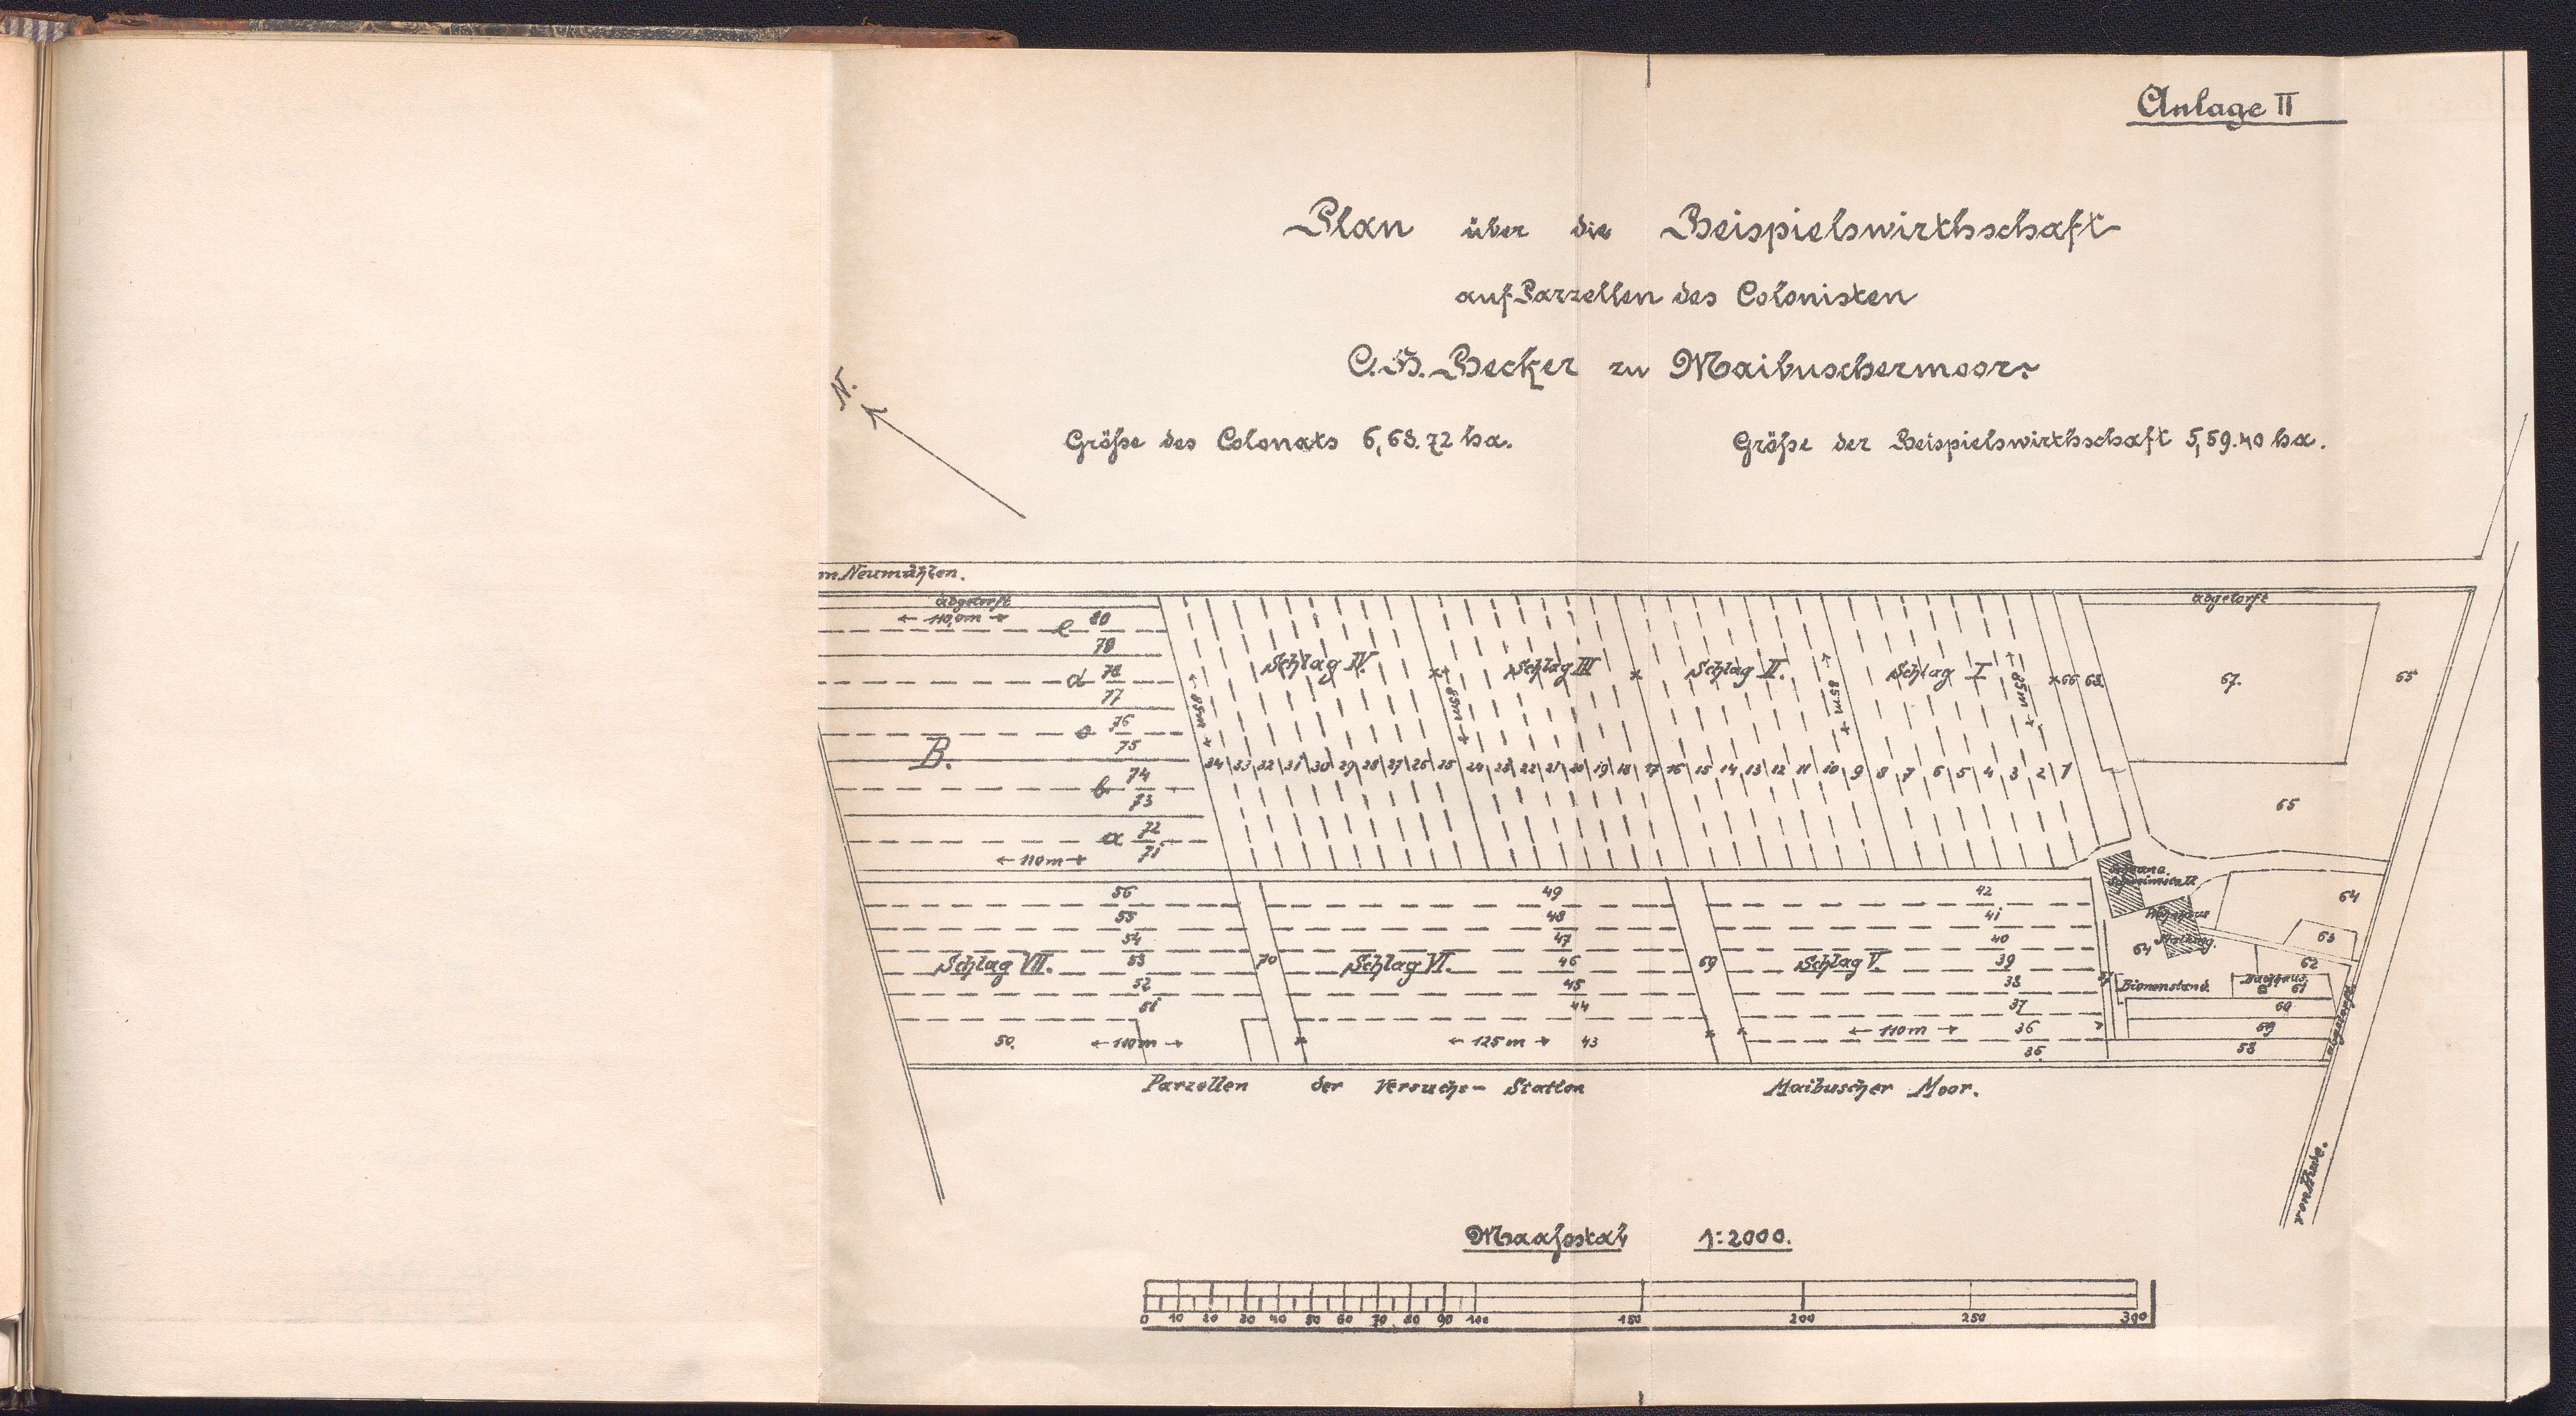 Anlage II
Plan über die Beispielswirthschaft
auf Parzellen des Colonisten
C. H. Becker zu Maibuschermoor.
Größe des Colonats 6,68.72 ha.
Größe der Beispielswirthschaft 5,59.40 ha.
N.
m. Neumühlen.
abgetorft
← 110,0m →
e 80
79
d 78
77
c 76
75
B.
b 74
73
a 72
71
← 110m →
Schlag IV.
Schlag III
Schlag II.
Schlag I
85m
85m
85m
85m
66 68.
abgetorft
67.
65
65
34 33 32 31 30 29 28 27 26 25 24 23 22 21 20 19 18 17 16 15 14 13 12 11 10 9 8 7 6 5 4 3 2 1
56
55
54
53
52
51
50.
Schlag VII.
← 110m →
70
49
48
47
46
45
44
43
Schlag VI.
← 125m →
69
42
41
40
39
38
37
36
35.
Schlag V.
← 110m →
Schweinestall
Wohnhaus
Stallung.
64
64
63
62
Bienenstand.
Backhaus
61
60
59
58
abgetorft
Parzellen der Versuchs- Station Maibuscher Moor.
von Hude.
Maaßstab 1:2000.
0 10 20 30 40 50 60 70 80 90 100 150 200 250 300